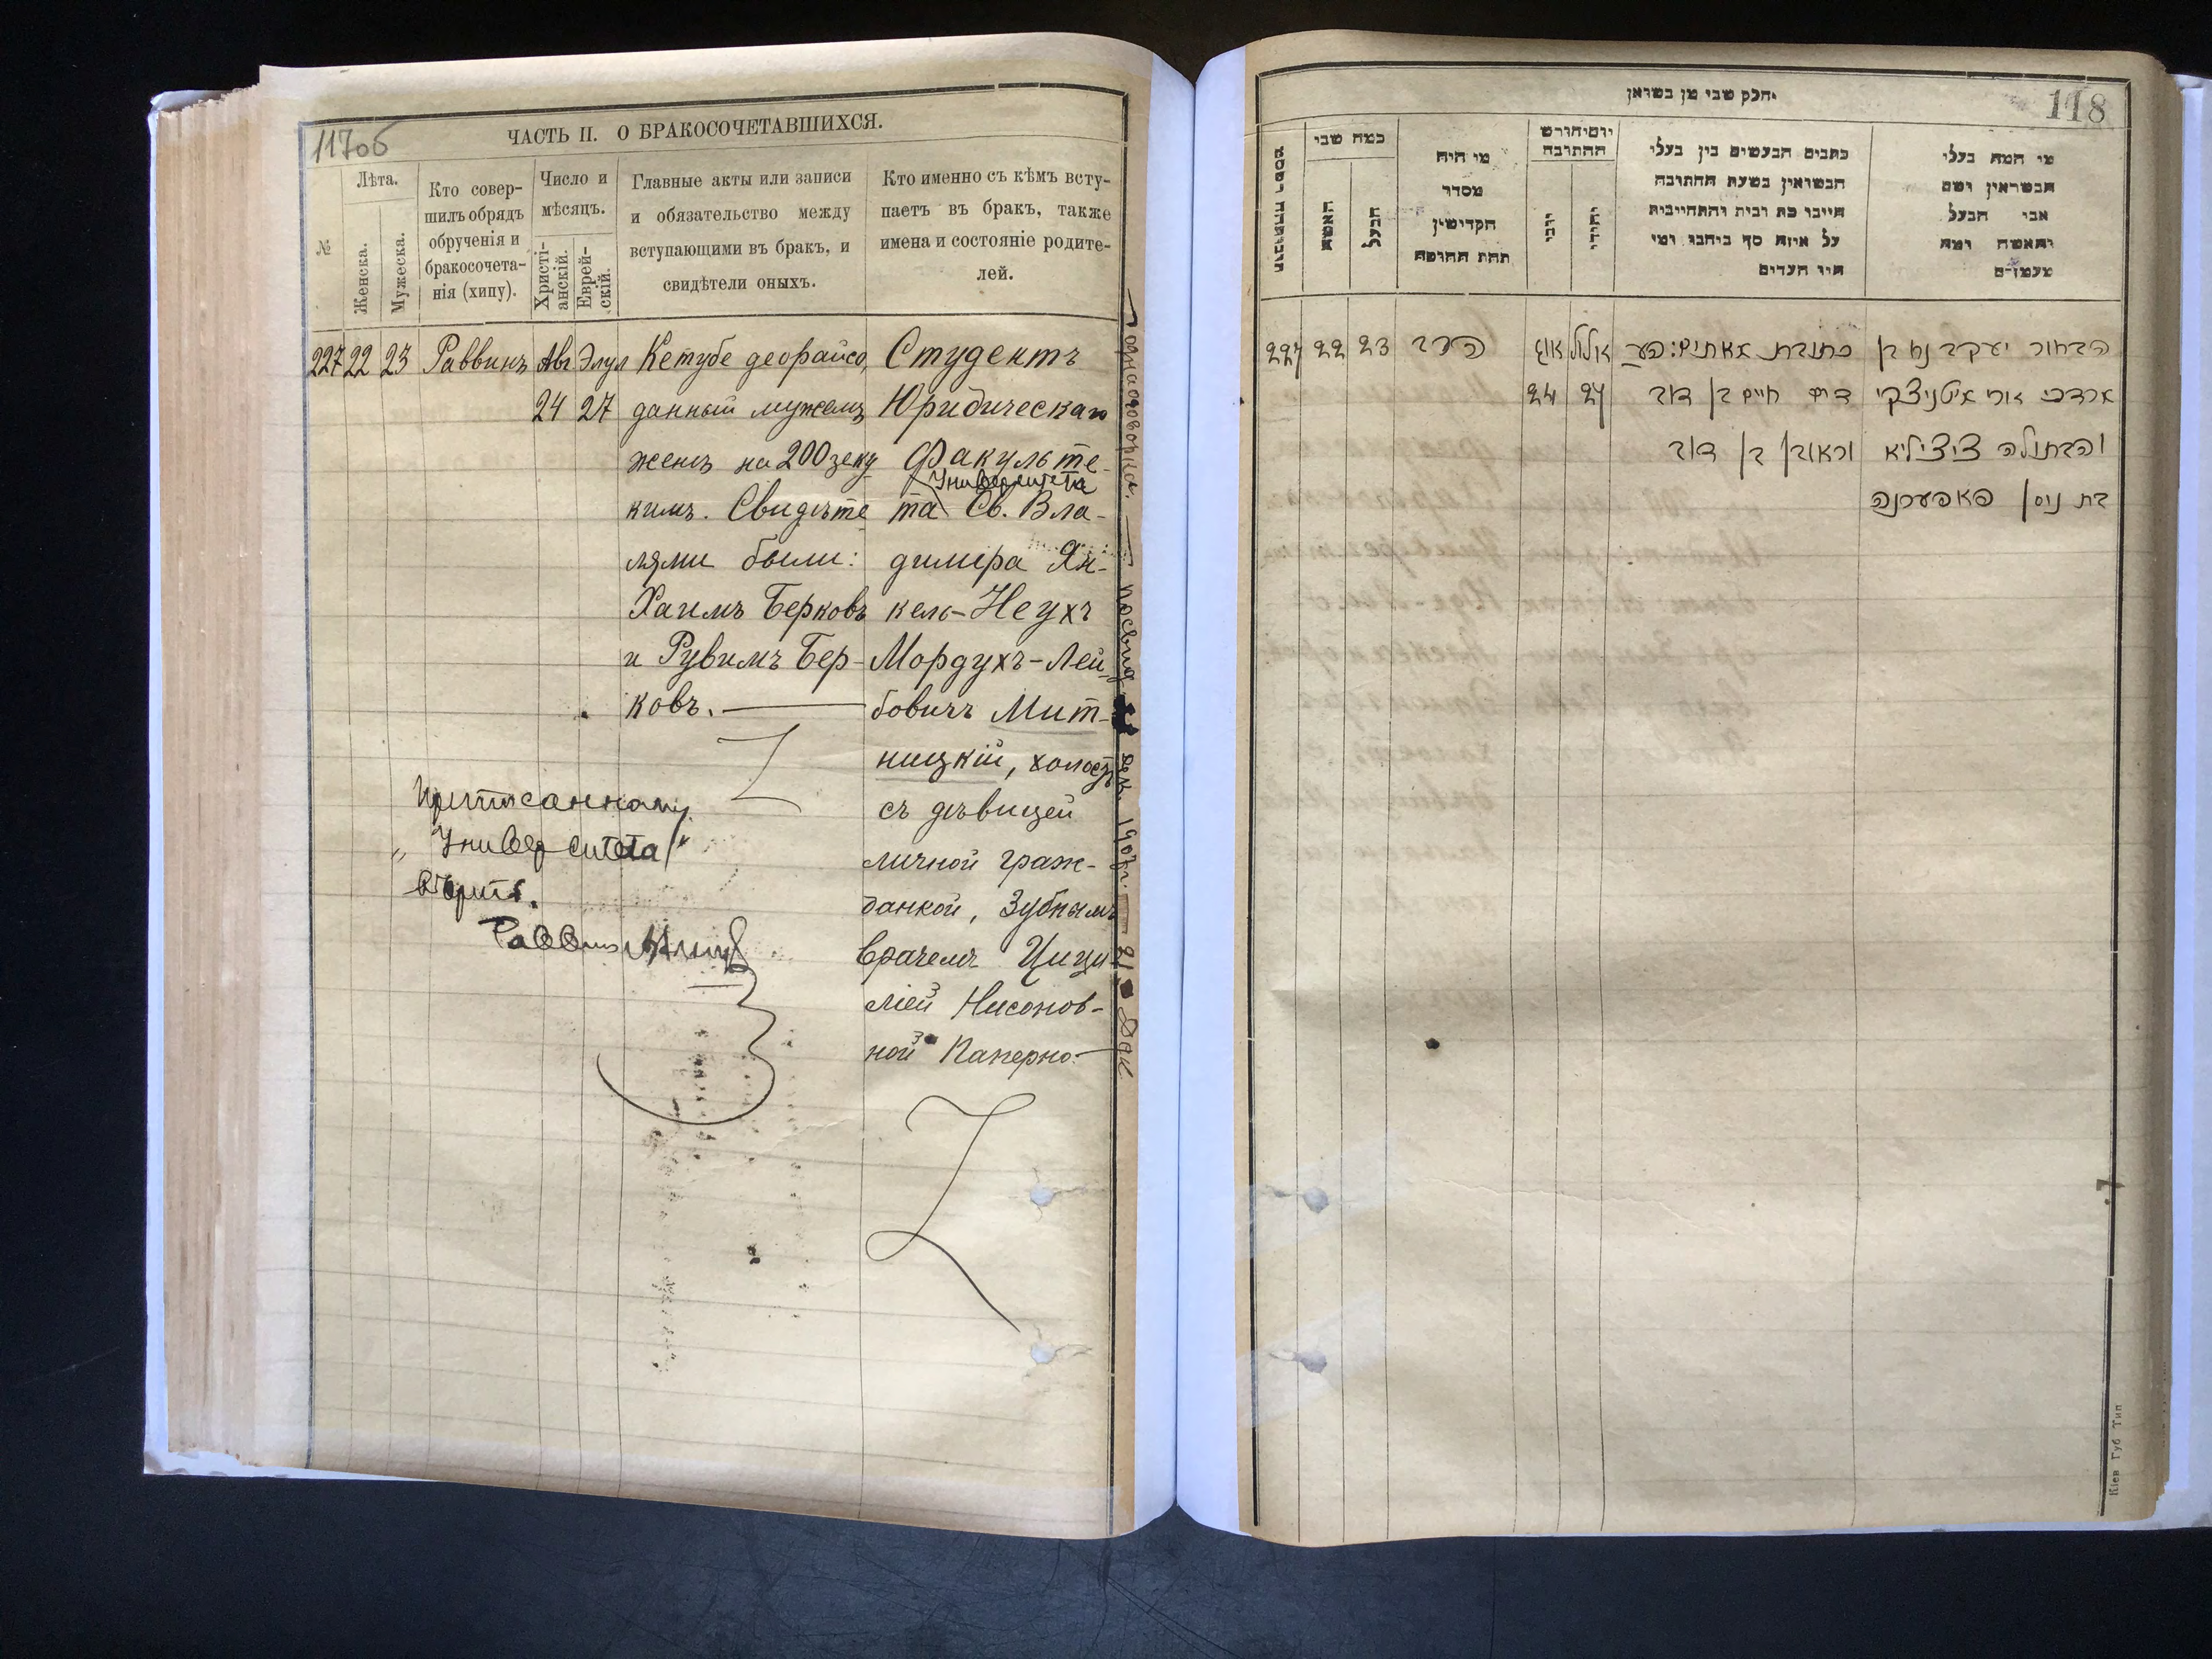 117об
ЧАСТЬ II. О БРАКОСОЧЕТАВШИХСЯ.
№
Лѣта.
Женска.
Мужеска.
Кто совер-
шилъ обрядъ
обрученія и
бракосочета-
нія (хипу).
Число и
мѣсяцъ.
Христі-
анскій.
Еврей-
скій.
Главные акты или записи
и обязательство между
вступающими въ бракъ, и
свидѣтели оныхъ.
Кто именно съ кѣмъ всту-
паетъ въ бракъ, также
имена и состояніе родите-
лей.
227
22
23
Раввинъ
Авг
24
Элул
27
Кетубе деорайсо,
данный мужемъ
женѣ на 200 зеку
кимъ. Свидѣте
лями были:
Хаимъ Берковъ
и Рувимъ Бер-
ковъ.
Студентъ
Юридическаго
Факульте-
Университета
та Св. Вла-
димера Ян-
кель-Неухъ
Мордухъ-Лей
бовичъ Мит-
ницкій, холостъ
съ дѣвицей
личной граж-
данкой, Зубнымъ
врачемъ Цици
ліей Нисонов-
ной Паперно.
Приписанному
„Университета"
вѣрить.
Раввинъ
118
חלק שני מן נשואין
כמה שני
האשה
הבעל
מי היה
מסדר
הקדושין
תחת החופה
יום וחודש
החתונה
יוני
יהודי
כתבים הנעשים בין בעלי
הנשואין בשעת החתונה
על איזה סך ניתנו ומי
היו העדים
מי המה בעלי
הנשואין ושם
אבי הבעל
והאשה ומה
מעמדם
227
22
23
הרב
אוג
24
אלול
27
כתובת מאתים: הע
דים חיים בן דוב
וראובן בן דוב
הבחור יעקב נח בן
מרדכי ארי מיטניצקי
והבתולה ציציליא
בת ניסן פאפערנה
Кіев Губ Тип